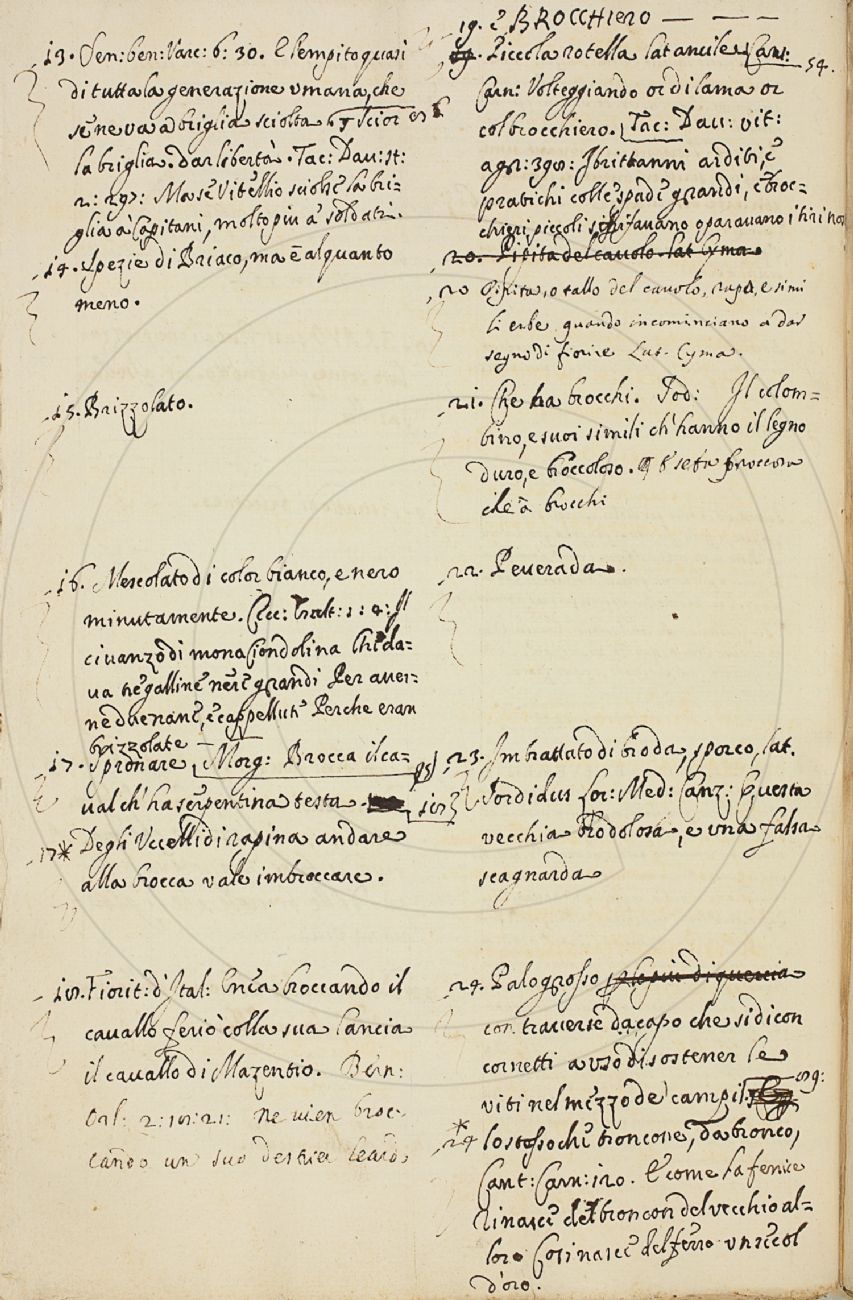 13. Sen: ben: Varc: 6: 30. E l'empito quasi
di tutta la generazione umana, che
se ne va a briglia sciolta
la briglia. dar libertà. Tac: Dav: st:
2: 297: Ma se Vitellio sciolse la bri=
glia a' Capitani, molto piu a' soldati.
14. Spezie di Briaco, ma è alquanto
meno.
15. Brizzolato.
16. Mescolato di color bianco, e nero
minutamente. Cecc:
civanzo di mona Ciondolina Chi da=
va tre galline nere grandi Per aver=
ne due nane, e cappellute Perche eran
brizzolate
17. Spronare Morg: Brocca il ca=
val ch'ha serpentina testa.
17* Degli Uccelli di rapina andare
alla brocca vale imbroccare.
18. Fiorit: d'Ital: Enea broccando il
cavallo ferio colla sua lancia
il cavallo di Mazentio. Bern:
Orl: 2: 18: 21: Ne vien broc-
cando un suo destrier leardo
19. e BROCCHIERO — — —
Piccola rotella lat ancile Cant: 54.
Carn: Volteggiando or di lama or
col brocchiero. Tac: Dav: vit:
agr: 398: I brittanni arditi, e
pratichi colle spade grandi, e broc=
chieri piccoli schifavano o paravano i tiri
20. Pipita del cavolo. lat Cyma
20 Pipita, o tallo del cavolo, rapa, e simi
li erbe quando incominciano a dar
segno di fiorire Lat. Cyma.
21. Che ha brocchi. Sod: Il colom=
bino, e suoi simili ch'hanno il legno
duro, e broccoloso.
che à brocchi
22. Peverada.
23. Imbrattato di broda, sporco, lat.
Sordidus Lor: Med: Canz: Questa
vecchia brodolosa, e una falsa
scagnarda
24. Palo grosso
con traverse da capo che si dicon
cornetti a uso di sostener le
viti nel mezzo de' campi. 89:
*24 lo stesso che troncone, da bronco,
Cant: Carn: 120. E come la fenice
Rinasce del broncon del vecchio al=
loro Cosi nasce del ferro un secol
d'oro.